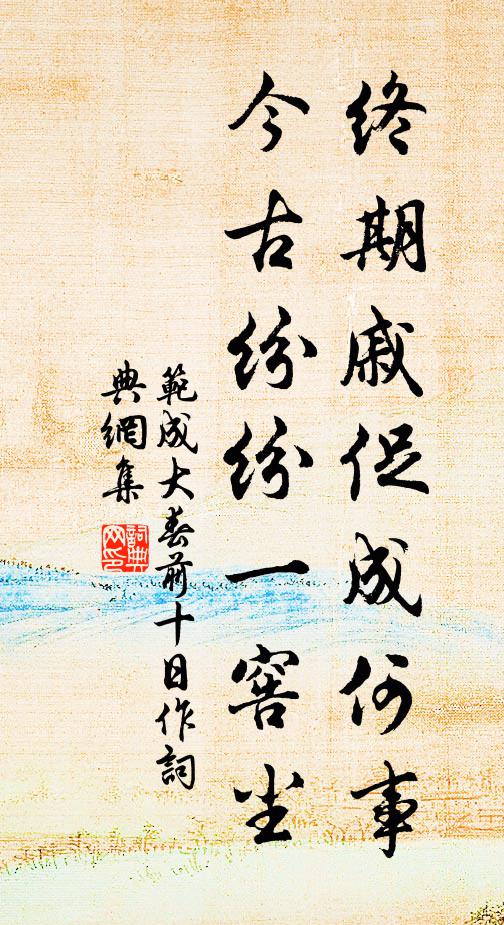 終期戚促成何事
今古紛紛一窖尘
範成大春前十日作詞
典網集
詞典
网印